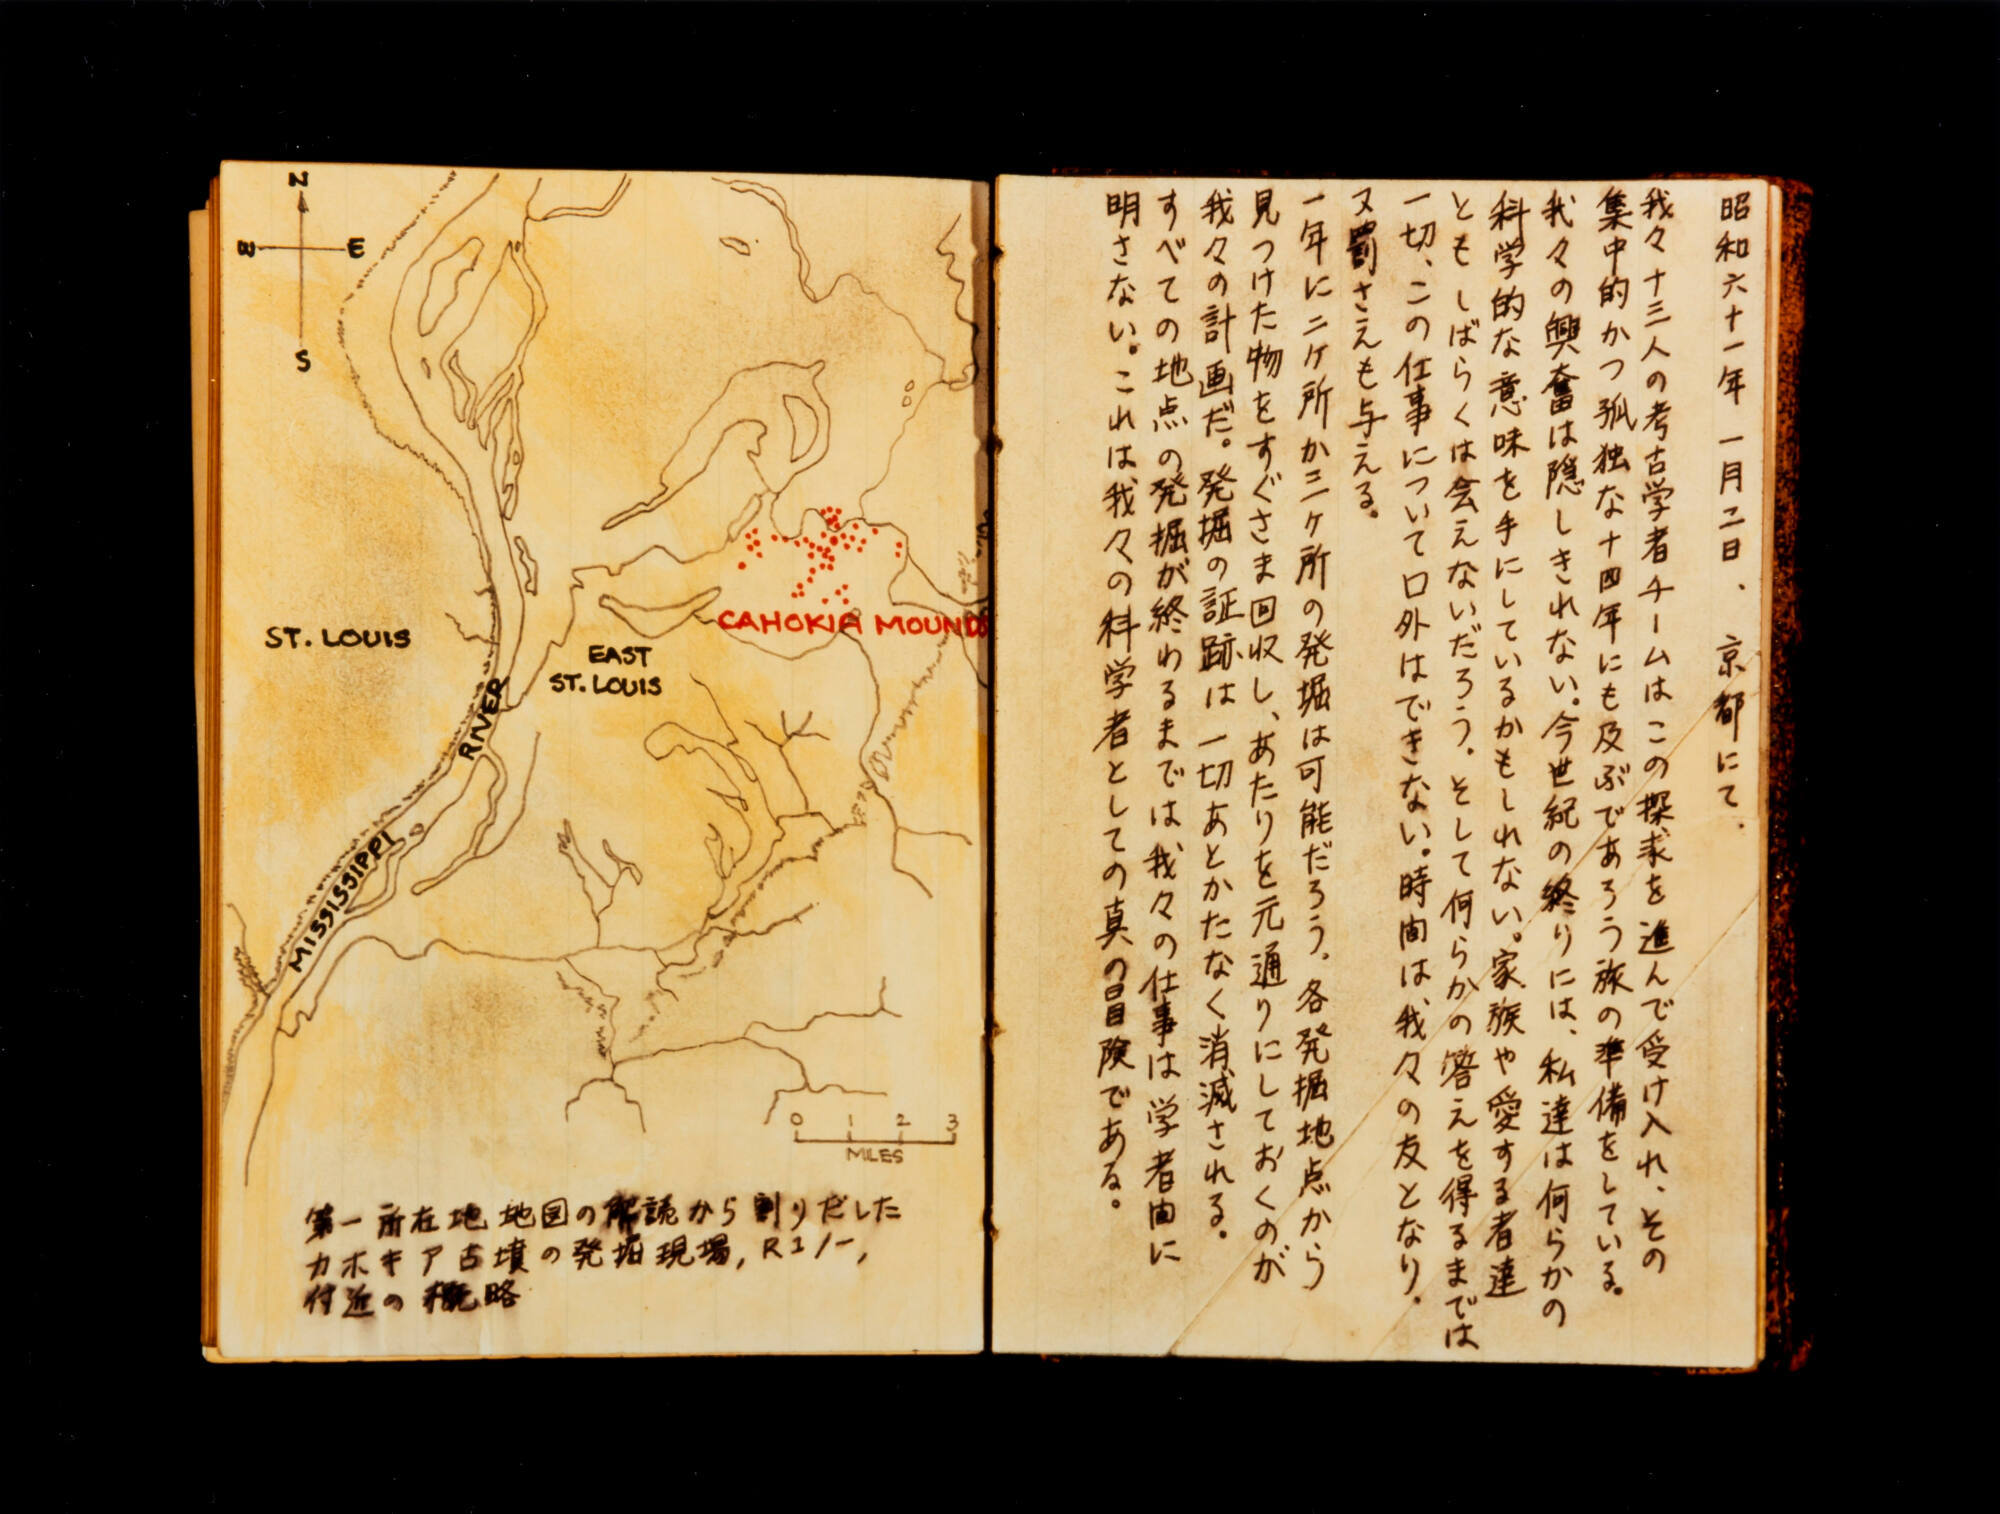 N
W E
S
ST. LOUIS
EAST
ST. LOUIS
CAHOKIA MOUNDS
MISSISSIPPI RIVER
0 1 2 3
MILES
第一所在地地図の解読から割りだした
カホキア古墳の発掘現場, R1/一,
付近の概略
昭和六十一年 一月二日、 京都にて.
我々十三人の考古学者チームはこの探求を進んで受け入れ、その
集中的かつ孤独な十四年にも及ぶであろう旅の準備をしている。
我々の興奮は隠しきれない。今世紀の終りには、私達は何らかの
科学的な意味を手にしているかもしれない。家族や愛する者達
ともしばらくは会えないだろう。そして何らかの答えを得るまでは
一切、この仕事について口外はできない。時間は我々の友となり.
又罰さえも与える。
一年に二ヶ所か三ヶ所の発掘は可能だろう、各発掘地点から
見つけた物をすぐさま回収し、あたりを元通りにしておくのが
我々の計画だ。発掘の証跡は一切あとかたなく消滅される。
すべての地点の発掘が終わるまでは我々の仕事は学者間に
明さない。これは我々の科学者としての真の冒険である。